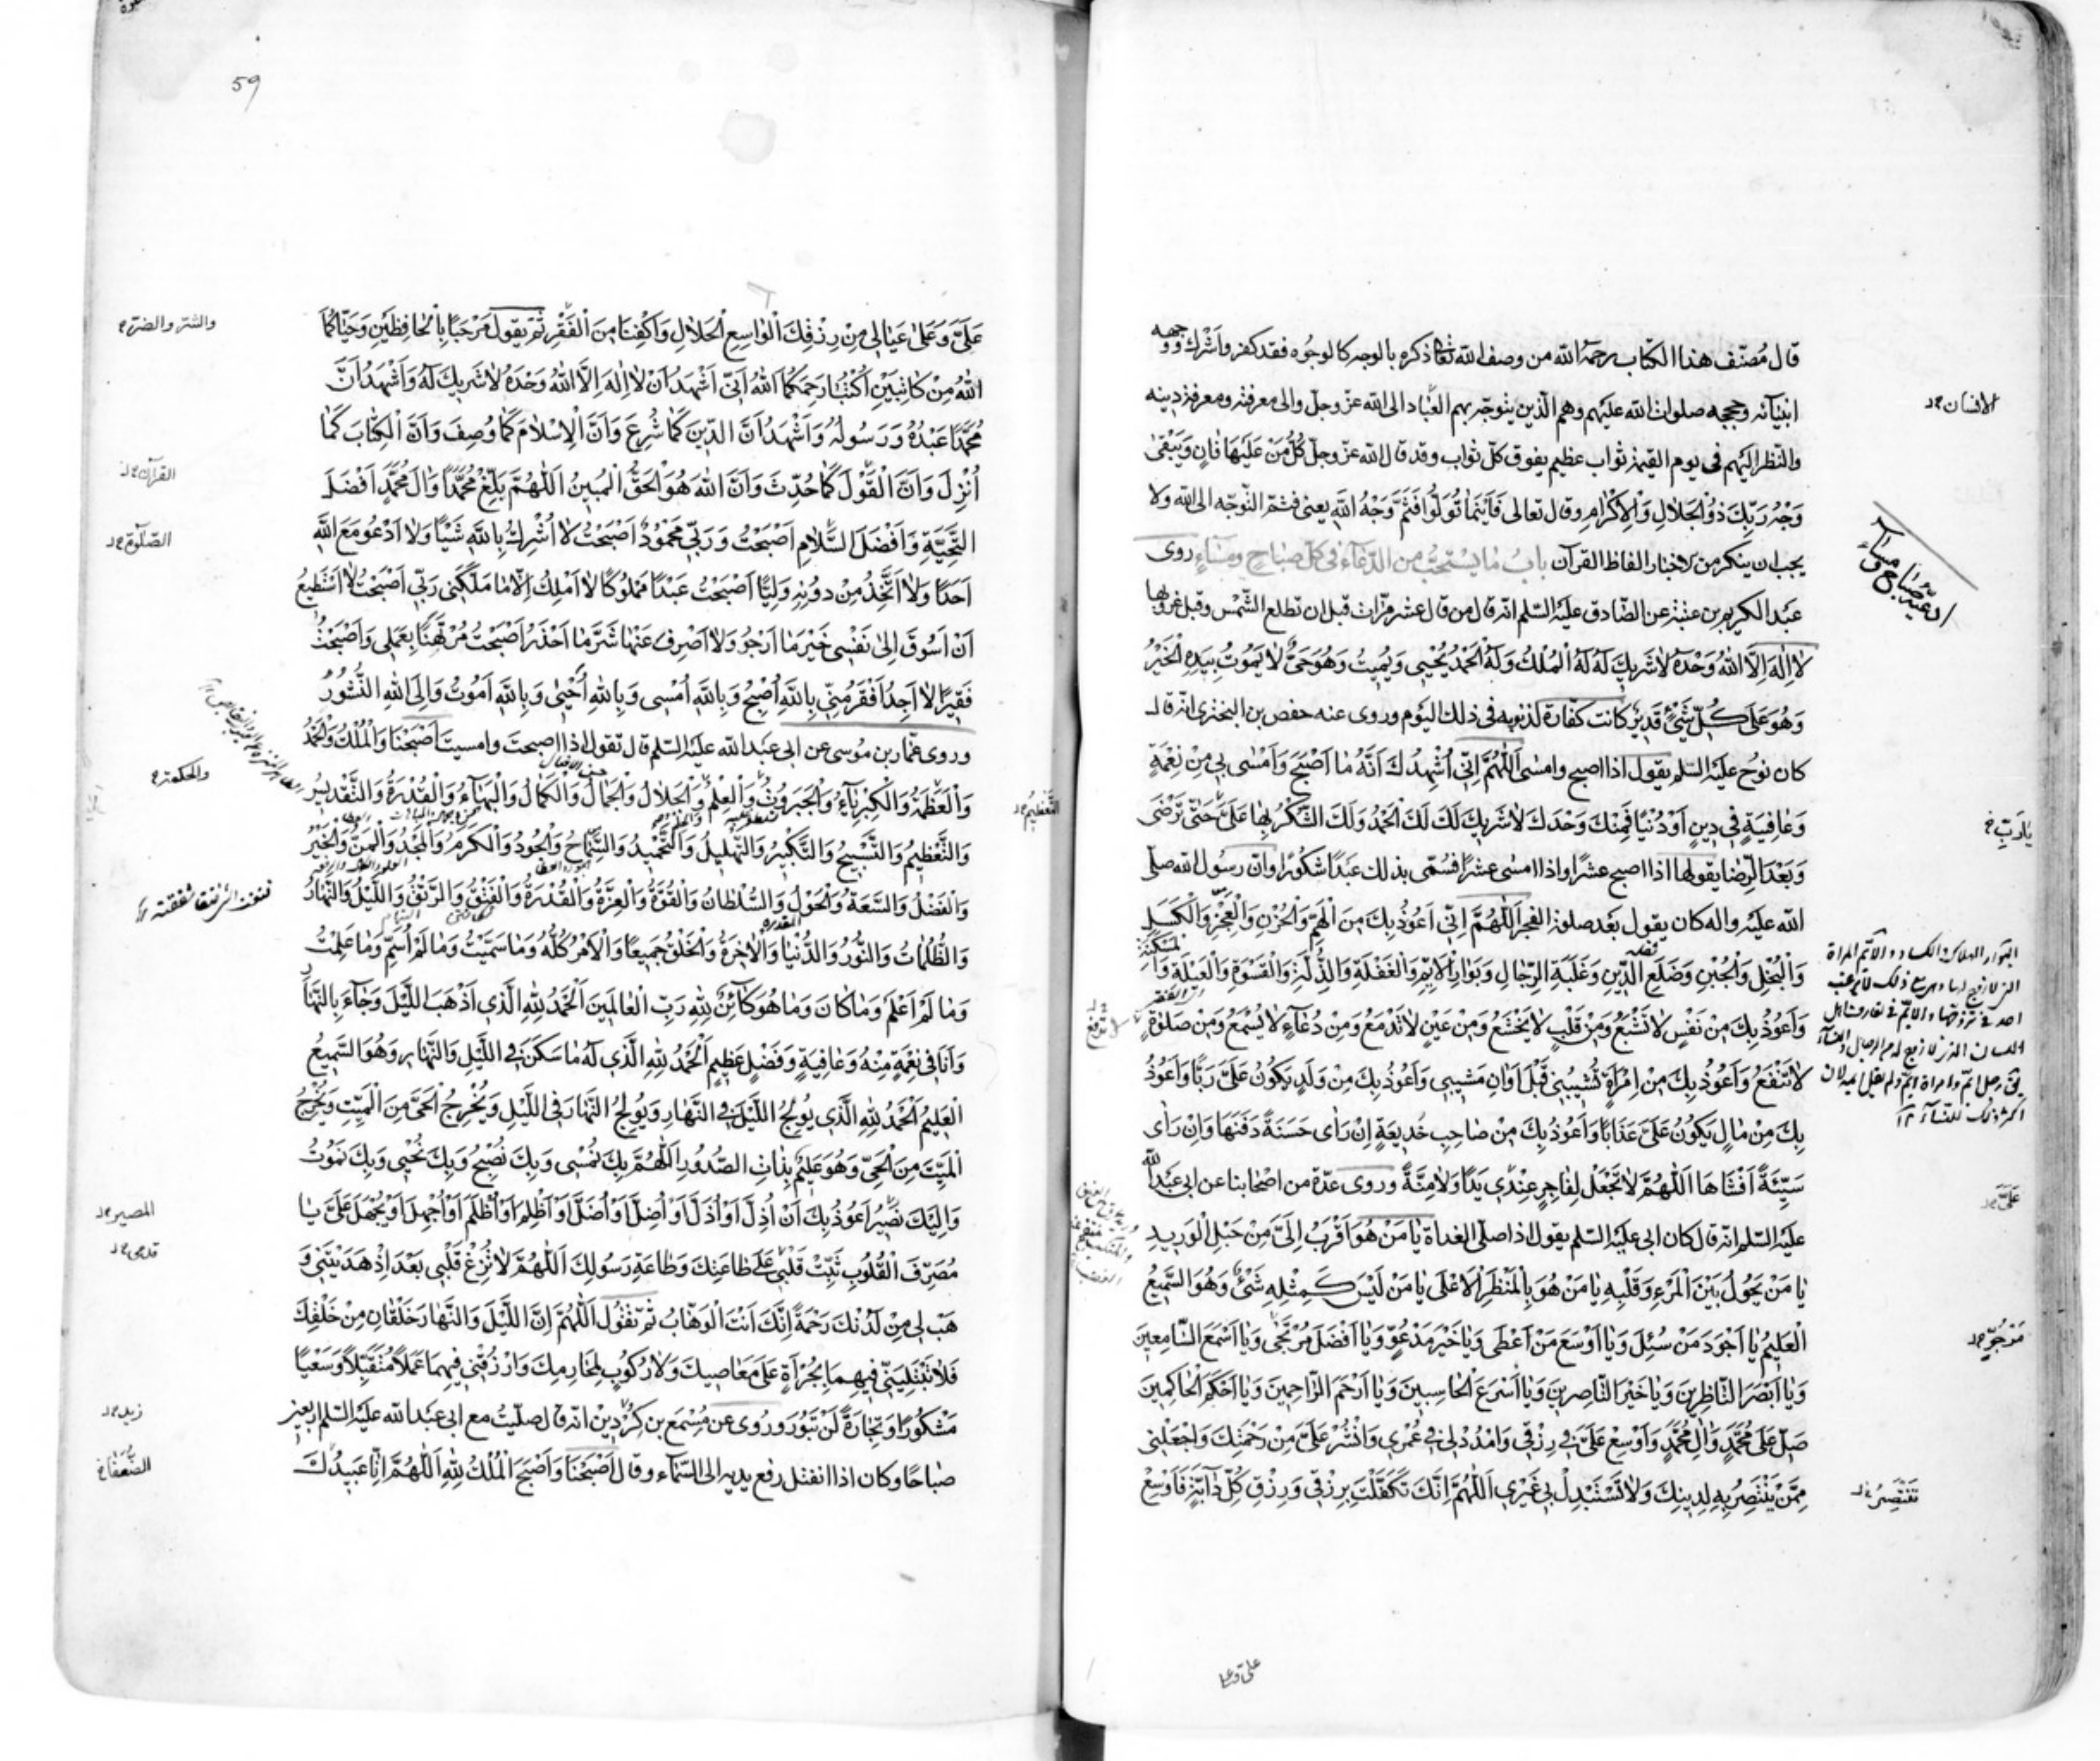 قال مُصنّف هذا الكتاب رحمه الله من وصف الله تعالى ذكره بالوجه كالوجوه فقد كفر واشرك ووجهه
انبيآئه وحججه صلوات الله عليهم وهم الّذين يتوجّه بهم العباد الى الله عزّ وجلّ والى معرفته ومعرفة دينه
والنظر اليهم فى يوم القيمة ثواب عظيم يفوق كلّ ثواب وقد قال الله عزّ وجلّ كُلُّ مَنْ عَلَيْهَا فَانٍ وَيَبْقىٰ
وَجْهُ رَبِّكَ ذُو الْجَلالِ وَالْاِكْرٰامِ وقال تعالى فَاَيْنَمٰا تُوَلُّوا فَثَمَّ وَجْهُ اللّٰهِ يعنى فثمّ التوجّه الى الله ولا
يجب ان ينكر من الاخبار الفاظ القرآن بابُ مٰا يُسْتَحَبُّ من الدّعآء فى كلّ صَبٰاحٍ ومسٰآءٍ روى
عبد الكريم بن عتبة عن الصّادق عليه السّلم انّه قال من قال عشر مرّات قبل ان تطلع الشّمس وقبل غروبها
لاٰ اِلٰهَ اِلَّا اللّٰهُ وَحْدَهُ لاٰ شَرِيكَ لَهُ لَهُ الْمُلْكُ وَلَهُ الْحَمْدُ يُحْيِى وَيُمِيتُ وَهُوَ حَىٌّ لاٰ يَمُوتُ بِيَدِهِ الْخَيْرُ
وَهُوَ عَلىٰ كُلِّ شَىْءٍ قَدِيرٌ كانت كفّارة لذنوبه فى ذلك اليوم وروى عنه حفص بن البخترى انّه قال
كان نوح عليه السّلم يقول اذا اصبح وامسى اَللّٰهُمَّ اِنِّى اُشْهِدُكَ اَنَّهُ مٰا اَصْبَحَ وَاَمْسٰى بِى مِنْ نِعْمَةٍ
وَعٰافِيَةٍ فِى دِينٍ اَوْ دُنْيٰا فَمِنْكَ وَحْدَكَ لاٰ شَرِيكَ لَكَ لَكَ الْحَمْدُ وَلَكَ الشُّكْرُ بِهٰا عَلَىَّ حَتّٰى تَرْضٰى
وَبَعْدَ الرِّضٰا يقولها اذا اصبح عشرًا واذا امسى عشرًا فسُمّى بذلك عبدًا شكورًا وانّ رسول الله صلّى
الله عليه واله كان يقول بعد صلوة الفجر اَللّٰهُمَّ اِنِّى اَعُوذُ بِكَ مِنَ الْهَمِّ وَالْحُزْنِ وَالْعَجْزِ وَالْكَسَلِ
وَالْبُخْلِ وَالْجُبْنِ وَضَلَعِ الدَّيْنِ وَغَلَبَةِ الرِّجٰالِ وَبَوٰارِ الْاَيِّمِ وَالْغَفْلَةِ وَالذِّلَّةِ وَالْقَسْوَةِ وَالْعَيْلَةِ وَالْمَسْكَنَةِ
وَاَعُوذُ بِكَ مِنْ نَفْسٍ لاٰ تَشْبَعُ وَمِنْ قَلْبٍ لاٰ يَخْشَعُ وَمِنْ عَيْنٍ لاٰ تَدْمَعُ وَمِنْ دُعٰآءٍ لاٰ يُسْمَعُ وَمِنْ صَلوٰةٍ
لاٰ تَنْفَعُ وَاَعُوذُ بِكَ مِنِ امْرَأَةٍ تُشَيِّبُنِى قَبْلَ اَوٰانِ مَشِيبِى وَاَعُوذُ بِكَ مِنْ وَلَدٍ يَكُونُ عَلَىَّ رَبًّا وَاَعُوذُ
بِكَ مِنْ مٰالٍ يَكُونُ عَلَىَّ عَذٰابًا وَاَعُوذُ بِكَ مِنْ صٰاحِبِ خَدِيعَةٍ اِنْ رَاٰى حَسَنَةً دَفَنَهٰا وَاِنْ رَاٰى
سَيِّئَةً اَفْشٰاهٰا اَللّٰهُمَّ لاٰ تَجْعَلْ لِفٰاجِرٍ عِنْدِى يَدًا وَلاٰ مِنَّةً وروى عدّة من اصحابنا عن ابى عبد الله
عليه السّلم انّه قال كان ابى عليه السّلم يقول اذا صلّى الغداة يٰا مَنْ هُوَ اَقْرَبُ اِلَىَّ مِنْ حَبْلِ الْوَرِيدِ
يٰا مَنْ يَحُولُ بَيْنَ الْمَرْءِ وَقَلْبِهِ يٰا مَنْ هُوَ بِالْمَنْظَرِ الْاَعْلىٰ يٰا مَنْ لَيْسَ كَمِثْلِهِ شَىْءٌ وَهُوَ السَّمِيعُ
الْعَلِيمُ يٰا اَجْوَدَ مَنْ سُئِلَ وَيٰا اَوْسَعَ مَنْ اَعْطٰى وَيٰا خَيْرَ مَدْعُوٍّ وَيٰا اَفْضَلَ مُرْتَجًى وَيٰا اَسْمَعَ السّٰامِعِينَ
وَيٰا اَبْصَرَ النّٰاظِرِينَ وَيٰا خَيْرَ النّٰاصِرِينَ وَيٰا اَسْرَعَ الْحٰاسِبِينَ وَيٰا اَرْحَمَ الرّٰاحِمِينَ وَيٰا اَحْكَمَ الْحٰاكِمِينَ
صَلِّ عَلىٰ مُحَمَّدٍ وَاٰلِ مُحَمَّدٍ وَاَوْسِعْ عَلَىَّ فِى رِزْقِى وَامْدُدْ لِى فِى عُمْرِى وَانْشُرْ عَلَىَّ مِنْ رَحْمَتِكَ وَاجْعَلْنِى
مِمَّنْ يَنْتَصِرُ بِهِ لِدِينِكَ وَلاٰ تَسْتَبْدِلْ بِى غَيْرِى اَللّٰهُمَّ اِنَّكَ تَكَفَّلْتَ بِرِزْقِى وَرِزْقِ كُلِّ دٰآبَّةٍ فَاَوْسِعْ
على وعلى
الانسان
ادعية صباح ومساء
يٰا رَبِّ
عَلَىَّ
مَرْجُوٍّ
تَنْتَصِرُ
59
عَلَىَّ وَعَلىٰ عِيٰالِى مِنْ رِزْقِكَ الْوٰاسِعِ الْحَلاٰلِ وَاكْفِنٰا مِنَ الْفَقْرِ ثمّ يقول مَرْحَبًا بِالْحٰافِظَيْنِ وَحَيّٰاكُمَا
اللّٰهُ مِنْ كٰاتِبَيْنِ اُكْتُبٰا رَحِمَكُمَا اللّٰهُ اَنِّى اَشْهَدُ اَنْ لاٰ اِلٰهَ اِلَّا اللّٰهُ وَحْدَهُ لاٰ شَرِيكَ لَهُ وَاَشْهَدُ اَنَّ
مُحَمَّدًا عَبْدُهُ وَرَسُولُهُ وَاَشْهَدُ اَنَّ الدِّينَ كَمٰا شُرِعَ وَاَنَّ الْاِسْلاٰمَ كَمٰا وُصِفَ وَاَنَّ الْكِتٰابَ كَمٰا
اُنْزِلَ وَاَنَّ الْقَوْلَ كَمٰا حُدِّثَ وَاَنَّ اللّٰهَ هُوَ الْحَقُّ الْمُبِينُ اَللّٰهُمَّ بَلِّغْ مُحَمَّدًا وَاٰلَ مُحَمَّدٍ اَفْضَلَ
التَّحِيَّةِ وَاَفْضَلَ السَّلاٰمِ اَصْبَحْتُ وَرَبِّى مَحْمُودٌ اَصْبَحْتُ لاٰ اُشْرِكُ بِاللّٰهِ شَيْئًا وَلاٰ اَدْعُو مَعَ اللّٰهِ
اَحَدًا وَلاٰ اَتَّخِذُ مِنْ دُونِهِ وَلِيًّا اَصْبَحْتُ عَبْدًا مَمْلُوكًا لاٰ اَمْلِكُ اِلّٰا مٰا مَلَّكَنِى رَبِّى اَصْبَحْتُ لاٰ اَسْتَطِيعُ
اَنْ اَسُوقَ اِلىٰ نَفْسِى خَيْرَ مٰا اَرْجُو وَلاٰ اَصْرِفَ عَنْهٰا شَرَّ مٰا اَحْذَرُ اَصْبَحْتُ مُرْتَهَنًا بِعَمَلِى وَاَصْبَحْتُ
فَقِيرًا لاٰ اَجِدُ اَفْقَرَ مِنِّى بِاللّٰهِ اُصْبِحُ وَبِاللّٰهِ اُمْسِى وَبِاللّٰهِ اَحْيىٰ وَبِاللّٰهِ اَمُوتُ وَاِلَى اللّٰهِ النُّشُورُ
وروى عمّار بن موسى عن ابى عبد الله عليه السّلم قال تقول اذا اصبحت وامسيت اَصْبَحْنٰا وَالْمُلْكُ وَالْحَمْدُ
وَالْعَظَمَةُ وَالْكِبْرِيٰآءُ وَالْجَبَرُوتُ وَالْعِلْمُ وَالْجَلاٰلُ وَالْجَمٰالُ وَالْكَمٰالُ وَالْبَهٰآءُ وَالْقُدْرَةُ وَالتَّقْدِيسُ
وَالتَّعْظِيمُ وَالتَّسْبِيحُ وَالتَّكْبِيرُ وَالتَّهْلِيلُ وَالتَّحْمِيدُ وَالسَّمٰاحُ وَالْجُودُ وَالْكَرَمُ وَالْمَجْدُ وَالْمَنُّ وَالْخَيْرُ
وَالْفَضْلُ وَالسَّعَةُ وَالْحَوْلُ وَالسُّلْطٰانُ وَالْقُوَّةُ وَالْعِزَّةُ وَالْقُدْرَةُ وَالْفَتْقُ وَالرَّتْقُ وَاللَّيْلُ وَالنَّهٰارُ
وَالظُّلُمٰاتُ وَالنُّورُ وَالدُّنْيٰا وَالْاٰخِرَةُ وَالْخَلْقُ جَمِيعًا وَالْاَمْرُ كُلُّهُ وَمٰا سَمَّيْتُ وَمٰا لَمْ اُسَمِّ وَمٰا عَلِمْتُ
وَمٰا لَمْ اَعْلَمْ وَمٰا كٰانَ وَمٰا هُوَ كٰآئِنٌ لِلّٰهِ رَبِّ الْعٰالَمِينَ اَلْحَمْدُ لِلّٰهِ الَّذِى اَذْهَبَ اللَّيْلَ وَجٰآءَ بِالنَّهٰارِ
وَاَنَا فِى نِعْمَةٍ مِنْهُ وَعٰافِيَةٍ وَفَضْلٍ عَظِيمٍ اَلْحَمْدُ لِلّٰهِ الَّذِى لَهُ مٰا سَكَنَ فِى اللَّيْلِ وَالنَّهٰارِ وَهُوَ السَّمِيعُ
الْعَلِيمُ اَلْحَمْدُ لِلّٰهِ الَّذِى يُولِجُ اللَّيْلَ فِى النَّهٰارِ وَيُولِجُ النَّهٰارَ فِى اللَّيْلِ وَيُخْرِجُ الْحَىَّ مِنَ الْمَيِّتِ وَيُخْرِجُ
الْمَيِّتَ مِنَ الْحَىِّ وَهُوَ عَلِيمٌ بِذٰاتِ الصُّدُورِ اَللّٰهُمَّ بِكَ نُمْسِى وَبِكَ نُصْبِحُ وَبِكَ نَحْيىٰ وَبِكَ نَمُوتُ
وَاِلَيْكَ نَصِيرُ اَعُوذُ بِكَ اَنْ اَذِلَّ اَوْ اُذَلَّ اَوْ اَضِلَّ اَوْ اُضَلَّ اَوْ اَظْلِمَ اَوْ اُظْلَمَ اَوْ اَجْهَلَ اَوْ يُجْهَلَ عَلَىَّ يٰا
مُصَرِّفَ الْقُلُوبِ ثَبِّتْ قَلْبِى عَلىٰ طٰاعَتِكَ وَطٰاعَةِ رَسُولِكَ اَللّٰهُمَّ لاٰ تُزِغْ قَلْبِى بَعْدَ اِذْ هَدَيْتَنِى وَ
هَبْ لِى مِنْ لَدُنْكَ رَحْمَةً اِنَّكَ اَنْتَ الْوَهّٰابُ ثمّ تقول اَللّٰهُمَّ اِنَّ اللَّيْلَ وَالنَّهٰارَ خَلْقٰانِ مِنْ خَلْقِكَ
فَلاٰ تَبْتَلِيَنِّى فِيهِمٰا بِجُرْأَةٍ عَلىٰ مَعٰاصِيكَ وَلاٰ رُكُوبٍ لِمَحٰارِمِكَ وَارْزُقْنِى فِيهِمٰا عَمَلاً مُتَقَبَّلاً وَسَعْيًا
مَشْكُورًا وَتِجٰارَةً لَنْ تَبُورَ وروى عن مسمع بن كردين انّه قال صلّيت مع ابى عبد الله عليه السّلم اربعين
صباحًا وكان اذا انفتل رفع يديه الى السّمآء وقال اَصْبَحْنٰا وَاَصْبَحَ الْمُلْكُ لِلّٰهِ اَللّٰهُمَّ اِنّٰا عَبِيدُكَ
والشّر والضرّ
القرآن
الصّلوٰة
والحكمة
التّعظيم
المصير
قدمى